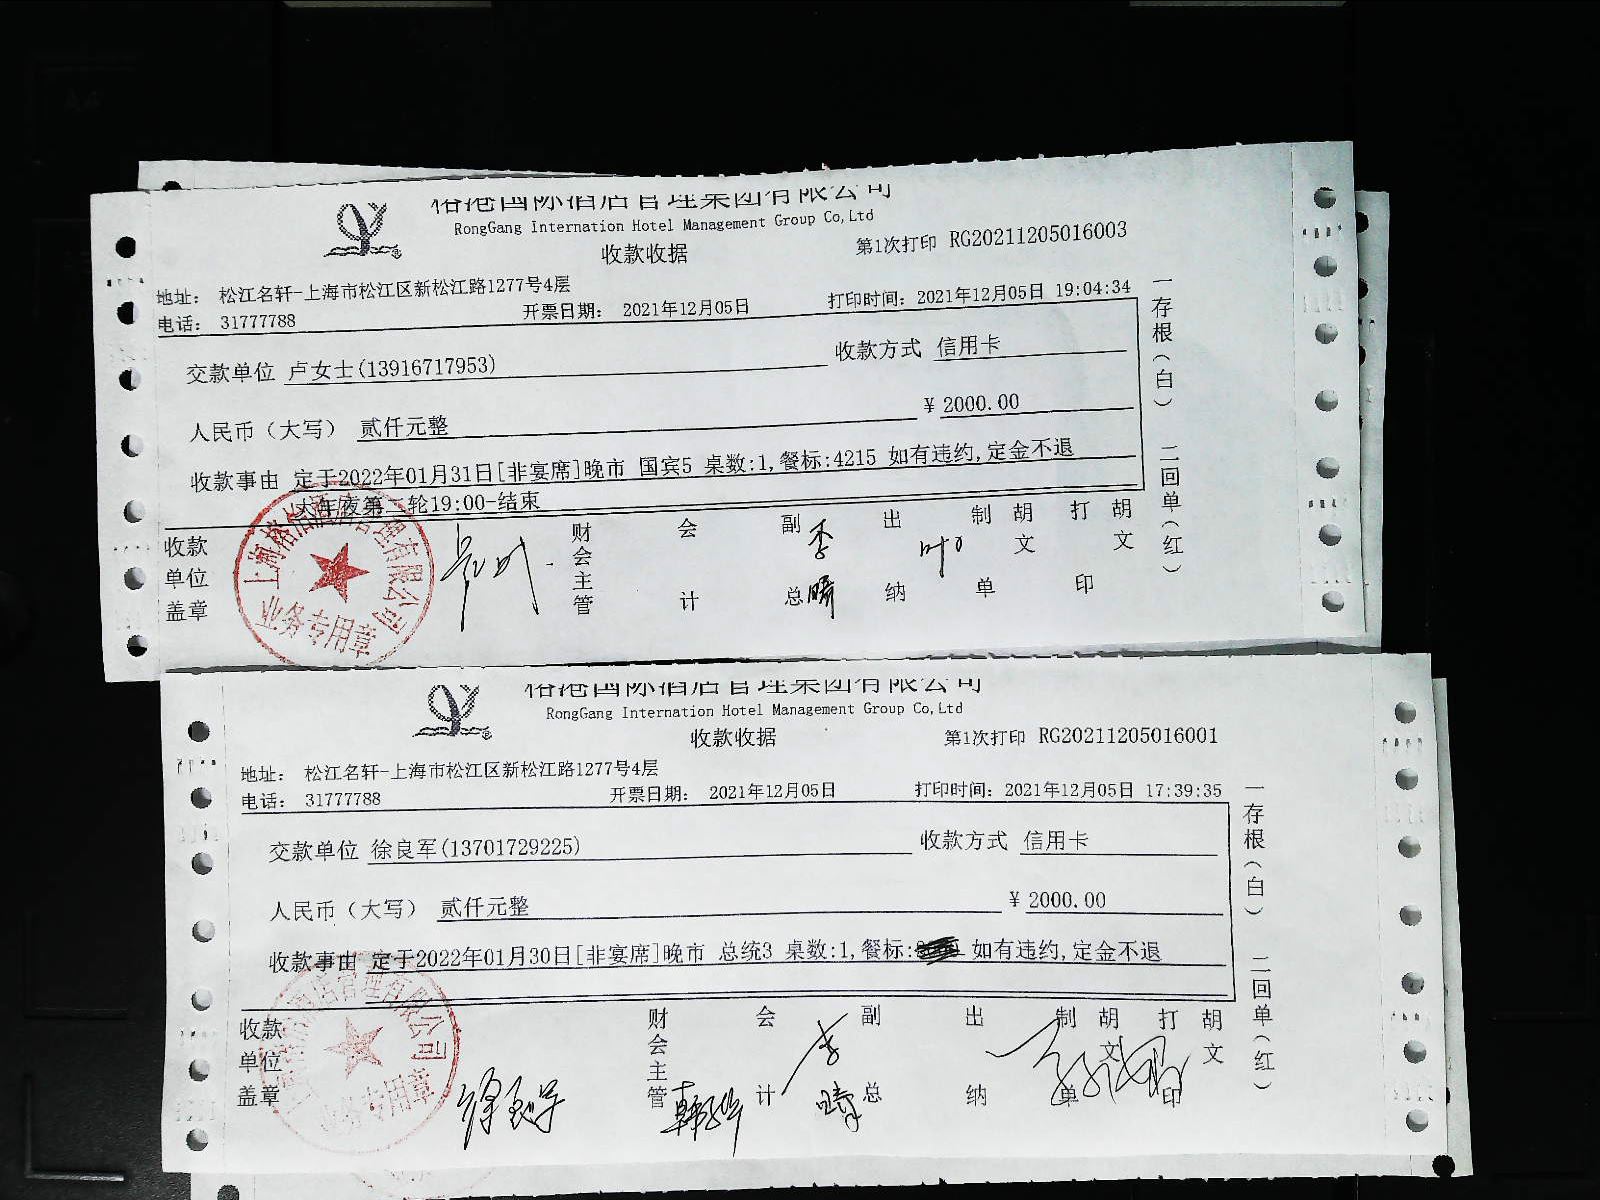 裕港国际酒店管理集团有限公司
RongGang Internation Hotel Management Group Co,Ltd
收款收据
第1次打印 RG20211205016003
地址： 松江名轩-上海市松江区新松江路1277号4层
电话： 31777788
开票日期： 2021年12月05日
打印时间：2021年12月05日 19:04:34
交款单位 卢女士(13916717953)
收款方式 信用卡
人民币（大写） 贰仟元整
¥ 2000.00
收款事由 定于2022年01月31日[非宴席]晚市 国宾5 桌数:1,餐标:4215 如有违约,定金不退
大年夜第二轮19:00-结束
收款单位盖章
财会主管
会计
副总
李晴
出纳
制单
胡文
打印
胡文
一存根（白） 二回单（红）
业务专用章
裕港国际酒店管理集团有限公司
RongGang Internation Hotel Management Group Co,Ltd
收款收据
第1次打印 RG20211205016001
地址： 松江名轩-上海市松江区新松江路1277号4层
电话： 31777788
开票日期： 2021年12月05日
打印时间：2021年12月05日 17:39:35
交款单位 徐良军(13701729225)
收款方式 信用卡
人民币（大写） 贰仟元整
¥ 2000.00
收款事由 定于2022年01月30日[非宴席]晚市 总统3 桌数:1,餐标: 如有违约,定金不退
收款单位盖章
徐良军
财会主管
会计
副总
李晴
出纳
制单
胡文
打印
胡文
一存根（白） 二回单（红）
业务专用章